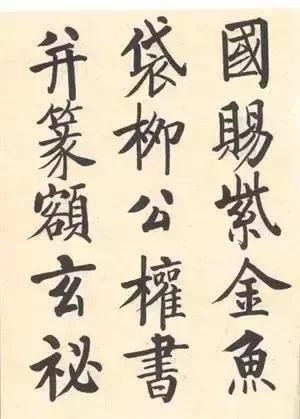 國賜紫金魚
袋柳公權書
并篆額玄祕